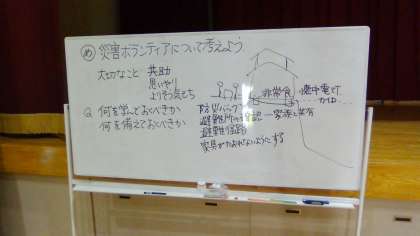 め 災害ボランティアについて考えよう
大切なこと 共助
思いやり
よりそう気もち
Q 何を学んでおくべきか
何を備えておくべきか
非常食 懐中電灯
防災パック
避難所の確認 ー家族と共有
避難経路
家具がたおれないようにする